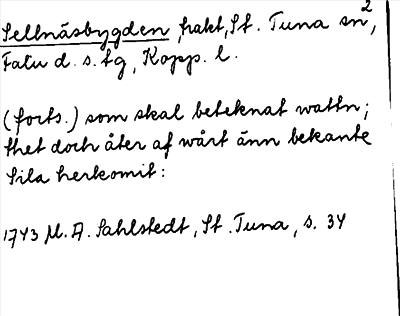 Sellnäsbygden, trakt, St. Tuna sn, 2
Falu d. s. tg, Kopp. l.
(forts.) som skal beteknat wattn;
thet doch åter af wårt änn bekante
Sila herkomit:
1743 M. A. Sahlstedt, St. Tuna, s. 34